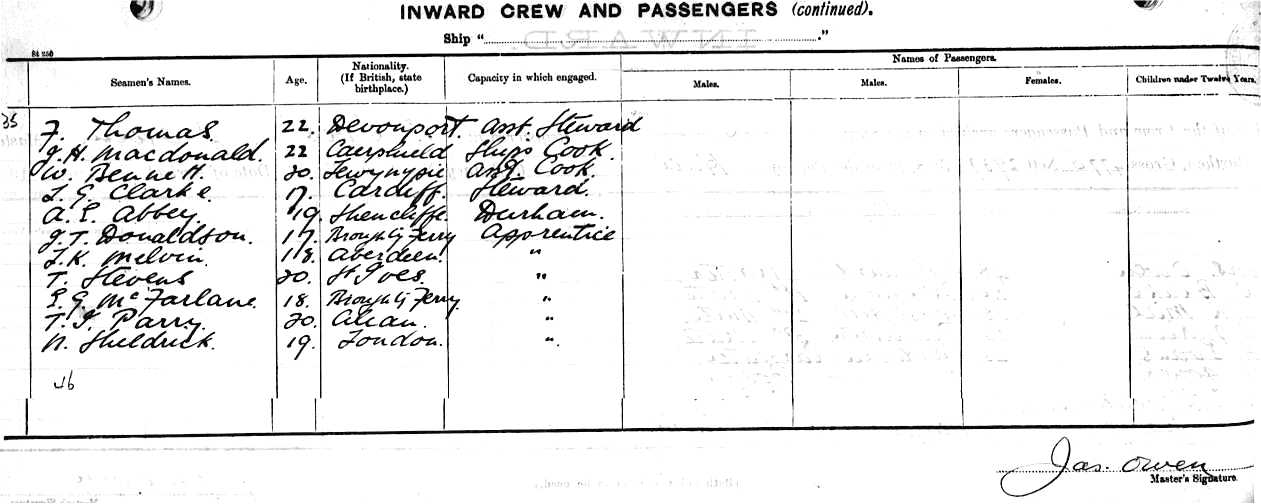 INWARD CREW AND PASSENGERS (continued).
Ship "..."
84 250
Seamen's Names. Age. Nationality. (If British, state birthplace.) Capacity in which engaged. Names of Passengers.
Males. Males. Females. Children under Twelve Years.
35
F. Thomas 22. Devonport. Asst. Steward
J. H. Macdonald. 22 Ships Cook.
W. Bennett. 20. Asst. Cook.
Clarke Cardiff. Steward.
A. E. Abbey. 19. Durham.
J. T. Donaldson. 17. Broughty Ferry Apprentice
Melvin. 18. Aberdeen. "
T. Stevens 20. St Ives. "
McFarlane. 18. Broughty Ferry. "
Parry. 20. "
N. Sheldrick. 19. London. "
46
Jas. Owen
Master's Signature.